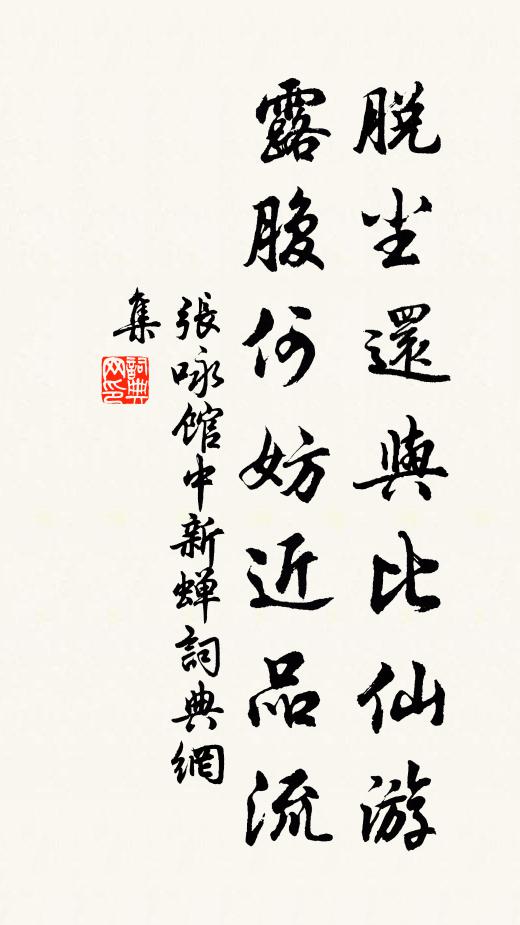 脫尘還與比仙游
露腹何妨近品流
張咏館中新蝉詞典網
集
詞典
网印